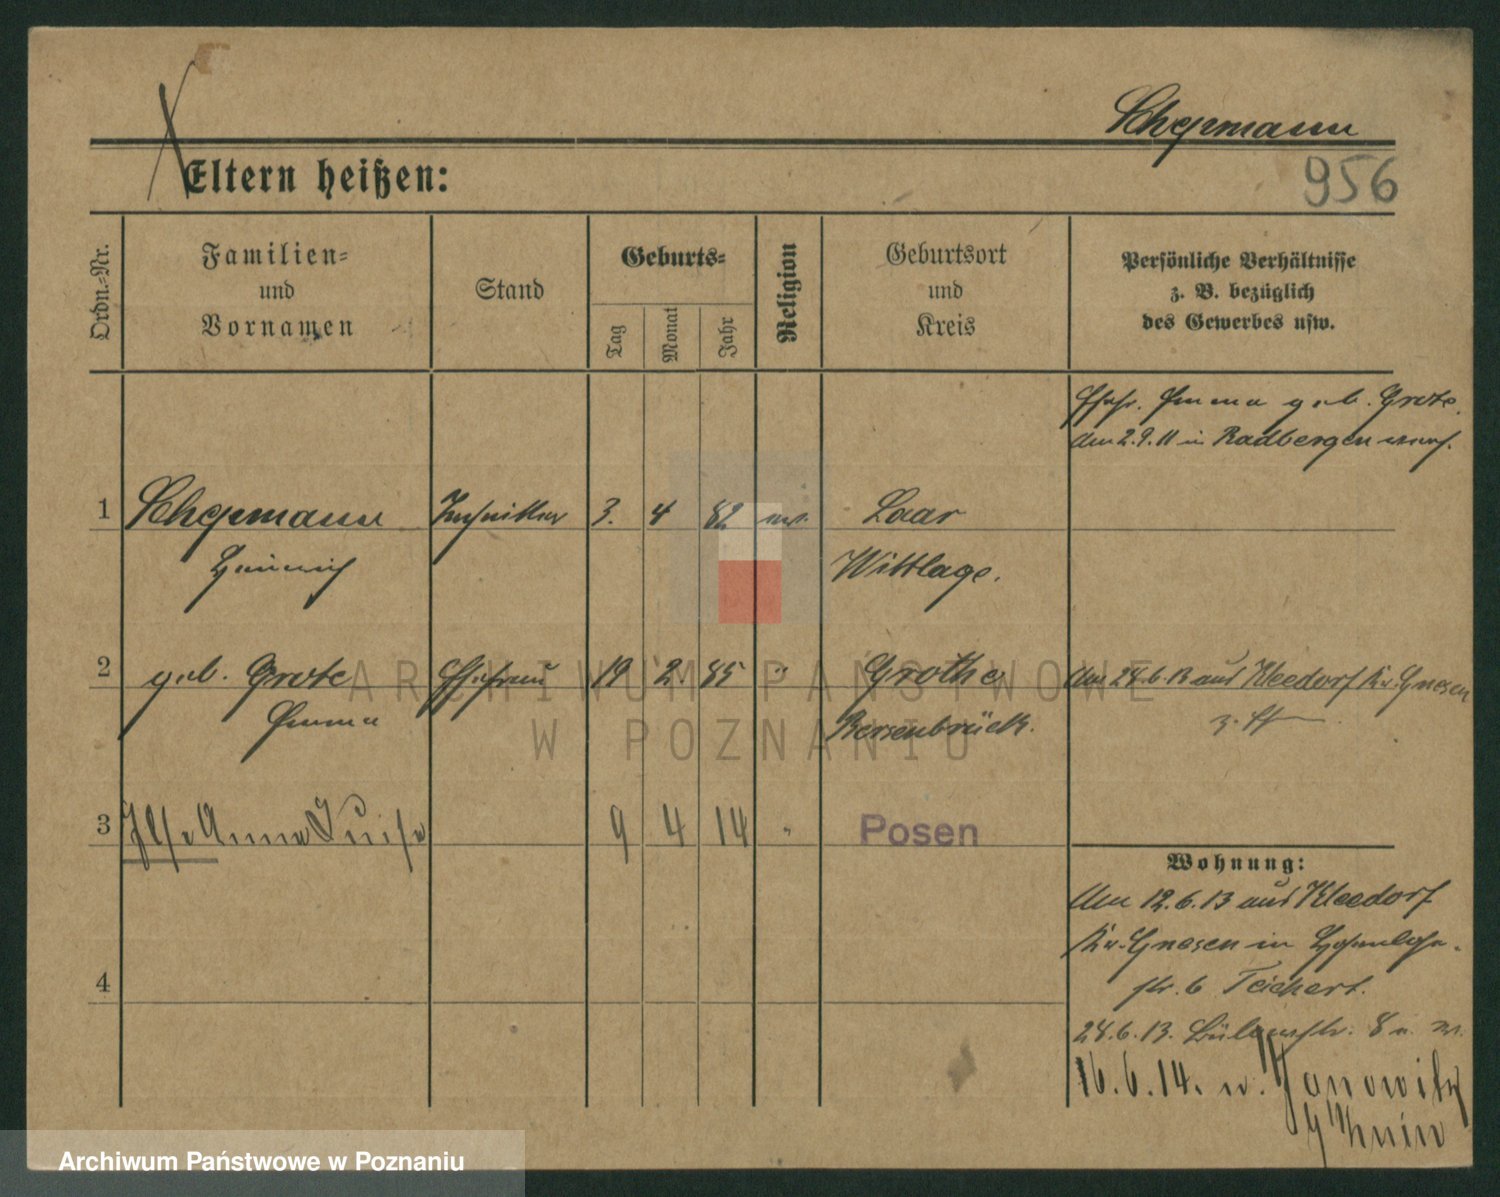 Schepmann
956
Eltern heißen:
Ordn.-Nr.
Familien-
und
Vornamen
Stand
Geburts-
Tag
Monat
Jahr
Religion
Geburtsort
und
Kreis
Persönliche Verhältnisse
z. B. bezüglich
des Gewerbes usw.
Ehefr. Emma geb. Grote
am 2.9.11 in Badbergen
1 Schepmann Techniker 3. 4 82 Laar
Heinrich Wittlage.
2 geb. Grote Ehefrau 19 2 85 " Grothe Am 24.6.13 aus Kleedorf Kr. Gnesen
Emma Bersenbrück.
3 Ilse Anna Luise 9 4 14 " Posen
Wohnung:
Am 12.6.13 aus Kleedorf
Kr. Gnesen in Hohenlohe-
str. 6 Teichert.
4
24.6.13. Bülowstr. 8
16.6.14. n. Janowitz
Znin
ARCHIWUM PAŃSTWOWE
W POZNANIU
Archiwum Państwowe w Poznaniu